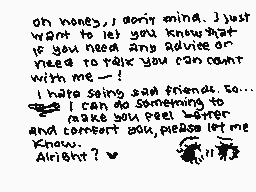 oh honey, I don't mind. I just
want to let you know that
if you need any advice or
need to talk you can count
with me —!
I hate seing sad friends. So...
I can do something to
make you feel better
and comfort you, please let me
know.
Alright? ♥